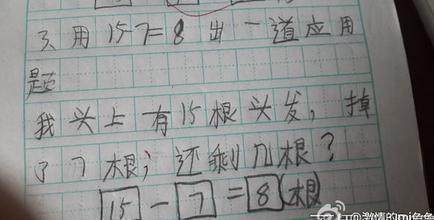 3、用15-7=8出一道应用
题
我头上有15根头发，掉
了7根，还剩几根？
15-7=8(根)
@激情的mi角兽